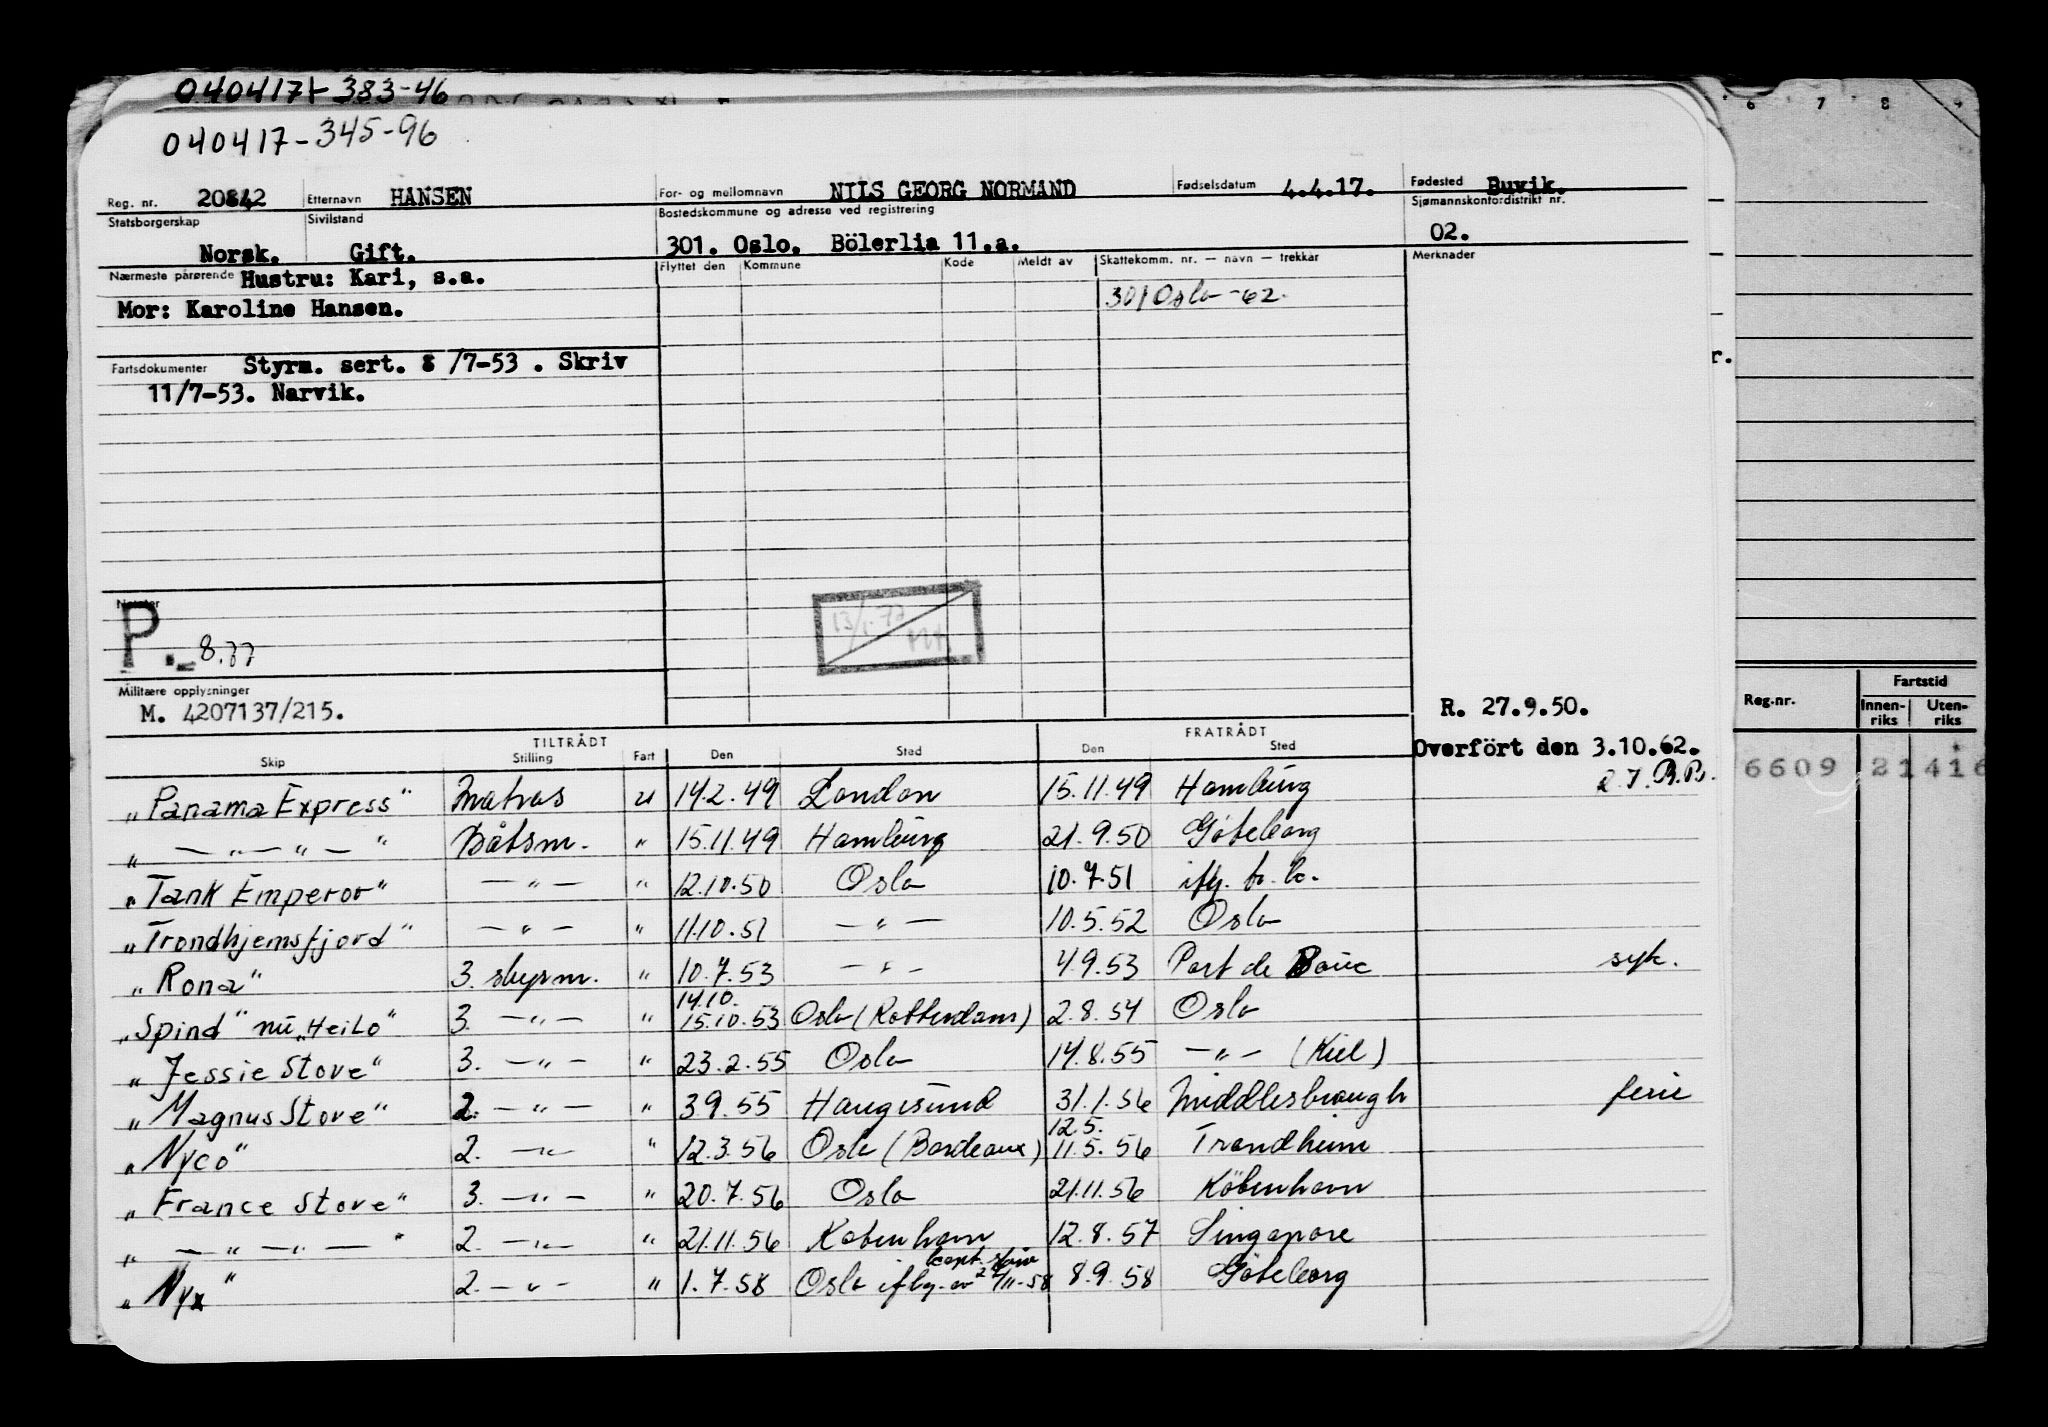 040417+383-46
040417-345-96
6 7 8 9
Reg. nr. 20842 Etternavn HANSEN For- og mellomnavn NILS GEORG NORMAND Fødselsdatum 4.4.17. Fødested Buvik.
Statsborgerskap Sivilstand Bostedskommune og adresse ved registrering Sjømannskontordistrikt nr.
Norsk. Gift. 301. Oslo. Bölerlia 11.a. 02.
Nærmeste pårørende Hustru: Kari, s.a. Flyttet den Kommune Kode Meldt av Skattekomm. nr. — navn — trekkår Merknader
Mor: Karoline Hansen. 301 Oslo -62.
Fartsdokumenter Styrm. sert. 8 /7-53 . Skriv r.
11/7-53. Narvik.
Notater
P.- 8.77
13/1.77
Militære opplysninger
M. 4207137/215. R. 27.9.50. Reg.nr. Fartstid
Innenriks Utenriks
TILTRÅDT FRATRÅDT
Skip Stilling Fart Den Sted Den Sted Overfört den 3.10.62.
6609 21416
"Panama Express" Matros u 14.2.49 London 15.11.49 Hamburg
" — " — " — " Båtsm. " 15.11.49 Hamburg 21.9.50 Göteborg
"Tank Emperor" — " — " 12.10.50 Oslo 10.7.51 ifg. h.b.
"Trondhjemsfjord" — " — " 11.10.51 — " — 10.5.52 Oslo
"Rona" 3. styrm. " 10.7.53 — " — 4.9.53 Port de Bouc syk.
14.10.
"Spind" nu "Heilo" 3. — " — " 15.10.53 Oslo (Rotterdam) 2.8.54 Oslo
"Jessie Stove" 3. — " — " 23.2.55 Oslo 14.8.55 — " — (Kiel)
"Magnus Stove" 2. — " — " 3.9.55 Haugesund 31.1.56 Middlesbrough ferie
12.5.
"Nyco" 2. — " — " 12.3.56 Oslo (Bordeaux) 11.5.56 Trondheim
"France Stove" 3. — " — " 20.7.56 Oslo 21.11.56 Köbenhavn
" — " — " — " 2. — " — " 21.11.56 Kobenhavn 12.8.57 Singapore
kapt. skriv
"Nyx" 2. — " — " 1.7.58 Oslo ifbg. av 24/11-58 8.9.58 Göteborg